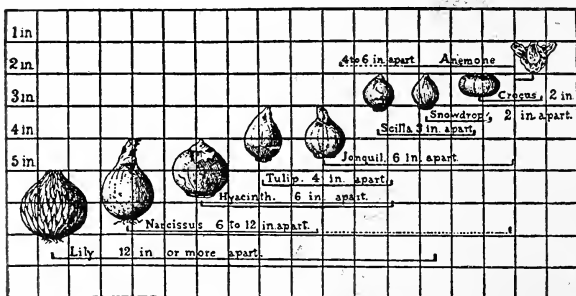 1 in
2 in
4 to 6 in. apart Anemone
3 in
Crocus, 2 in
Snowdrop, 2 in. apart.
4 in
Scilla 3 in. apart
5 in
Jonquil. 6 in. apart.
Tulip. 4 in. apart.
Hyacinth. 6 in. apart.
Narcissus 6 to 12 in. apart.
Lily 12 in or more apart.